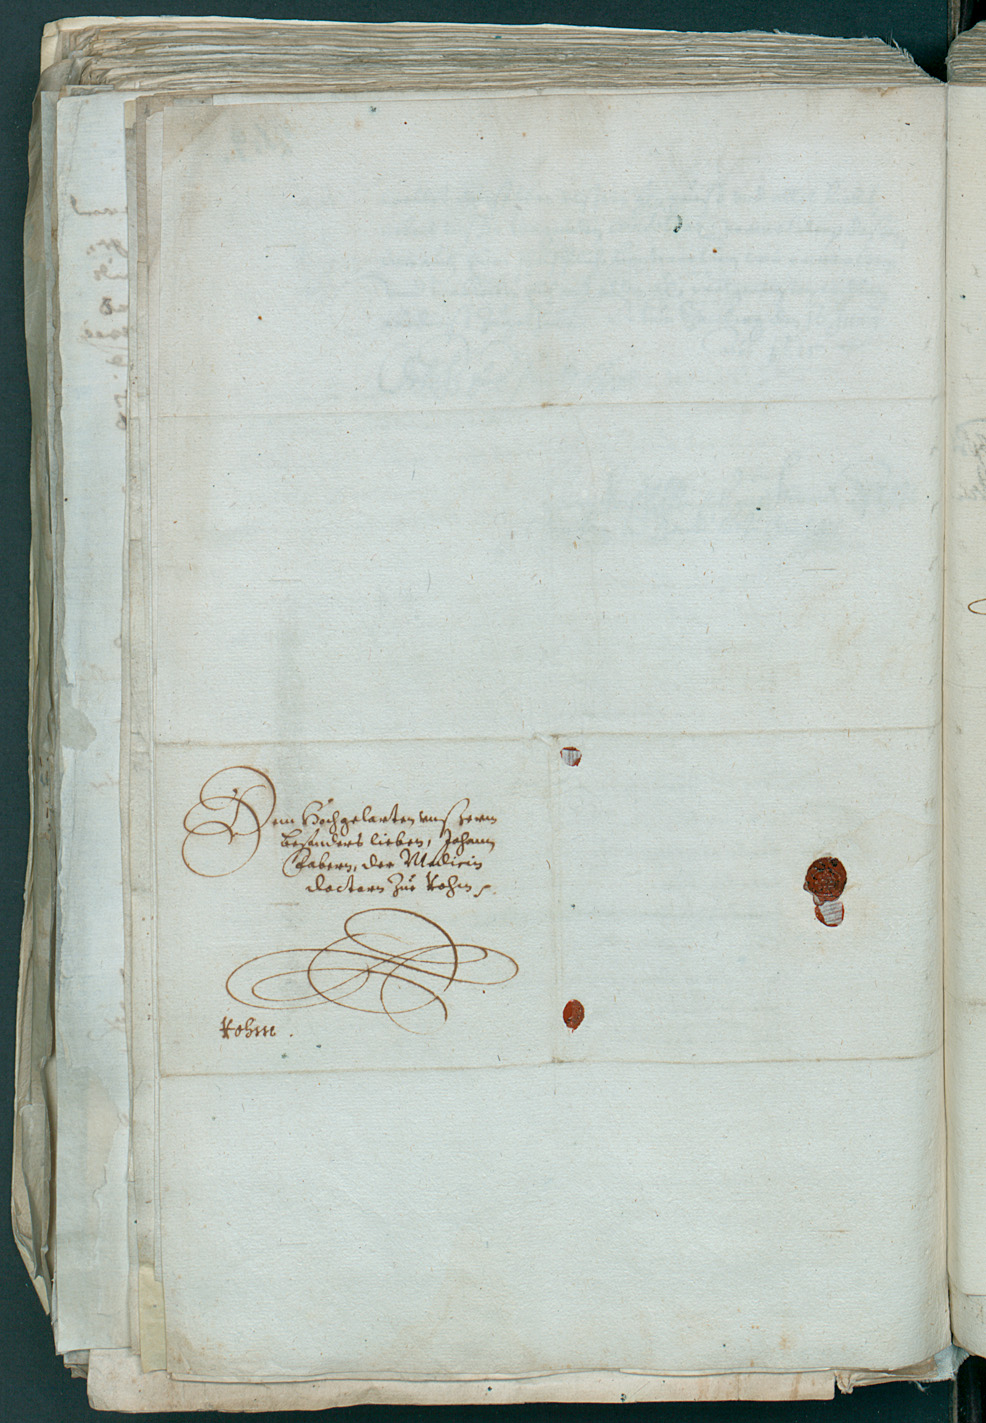 Dem Hochgelarten vnsserm
besonders lieben, Johann
Fabern, der Medicin
doctorn Zue Rohm
Rohm.